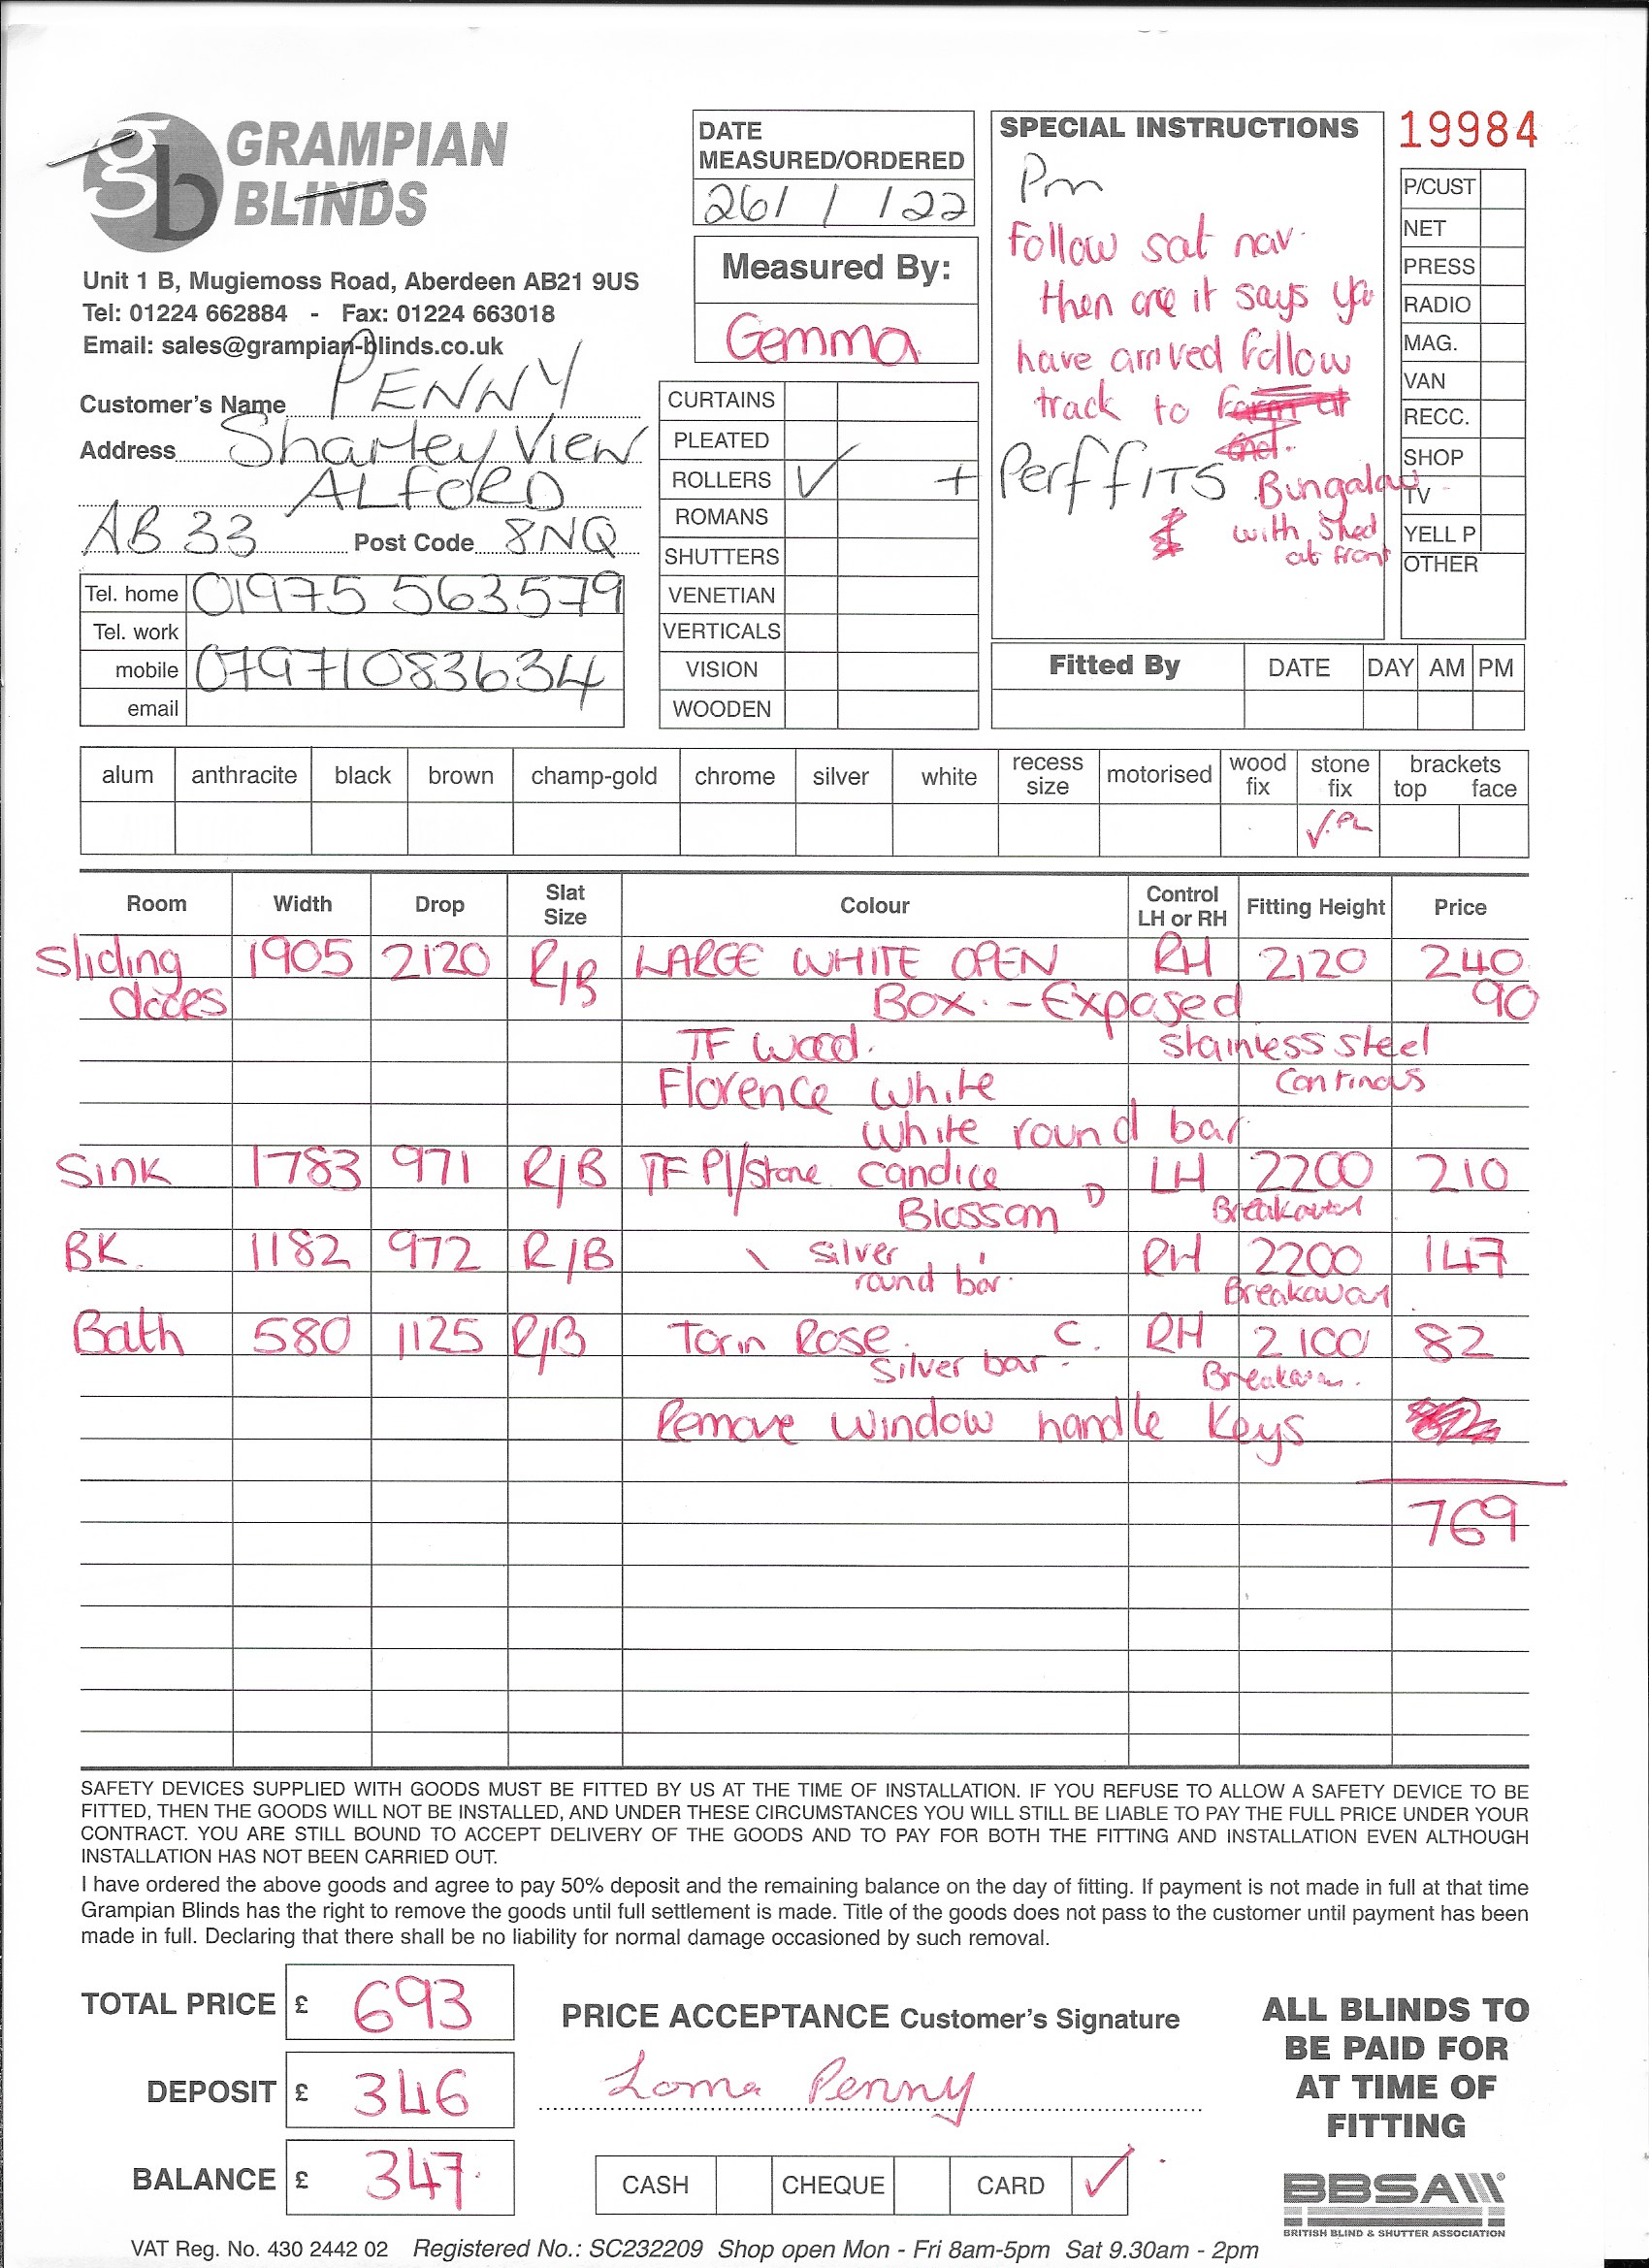 gb GRAMPIAN BLINDS
Unit 1 B, Mugiemoss Road, Aberdeen AB21 9US
Tel: 01224 662884 - Fax: 01224 663018
Email: sales@grampian-blinds.co.uk
Customer's Name PENNY
Address Sharley View
ALFORD
AB 33 Post Code 8NQ
Tel. home 01975 563579
Tel. work
mobile 07971083634
email
DATE
MEASURED/ORDERED
26/ / /22
Measured By:
Gemma
CURTAINS
PLEATED
ROLLERS ✓ +
ROMANS
SHUTTERS
VENETIAN
VERTICALS
VISION
WOODEN
SPECIAL INSTRUCTIONS
Pm
Follow sat nav
then once it says you
have arrived follow
track to
Perffits Bungalow
with shed
at front
19984
P/CUST
NET
PRESS
RADIO
MAG.
VAN
RECC.
SHOP
TV
YELL P
OTHER
Fitted By DATE DAY AM PM
alum anthracite black brown champ-gold chrome silver white recess size motorised wood fix stone fix brackets top face
✓.PL
Room Width Drop Slat Size Colour Control LH or RH Fitting Height Price
Sliding 1905 2120 R/B LARGE WHITE OPEN RH 2120 240
doors Box - Exposed 90
TF wood. Stainless steel
Florence White Continous
white round bar
Sink 1783 971 R/B TF Pl/Stone Candice LH 2200 210
Blossom D Breakaway
BK. 1182 972 R/B \ Silver ' RH 2200 147
round bar. Breakaway
Bath 580 1125 R/B Torin Rose. C. RH 2100 82
Silver bar -
Remove window handle keys
769
SAFETY DEVICES SUPPLIED WITH GOODS MUST BE FITTED BY US AT THE TIME OF INSTALLATION. IF YOU REFUSE TO ALLOW A SAFETY DEVICE TO BE
FITTED, THEN THE GOODS WILL NOT BE INSTALLED, AND UNDER THESE CIRCUMSTANCES YOU WILL STILL BE LIABLE TO PAY THE FULL PRICE UNDER YOUR
CONTRACT. YOU ARE STILL BOUND TO ACCEPT DELIVERY OF THE GOODS AND TO PAY FOR BOTH THE FITTING AND INSTALLATION EVEN ALTHOUGH
INSTALLATION HAS NOT BEEN CARRIED OUT.
I have ordered the above goods and agree to pay 50% deposit and the remaining balance on the day of fitting. If payment is not made in full at that time
Grampian Blinds has the right to remove the goods until full settlement is made. Title of the goods does not pass to the customer until payment has been
made in full. Declaring that there shall be no liability for normal damage occasioned by such removal.
TOTAL PRICE £ 693
DEPOSIT £ 346
BALANCE £ 347
PRICE ACCEPTANCE Customer's Signature
Lorna Penny
CASH CHEQUE CARD ✓
ALL BLINDS TO
BE PAID FOR
AT TIME OF
FITTING
BBSA
BRITISH BLIND & SHUTTER ASSOCIATION
VAT Reg. No. 430 2442 02 Registered No.: SC232209 Shop open Mon - Fri 8am-5pm Sat 9.30am - 2pm